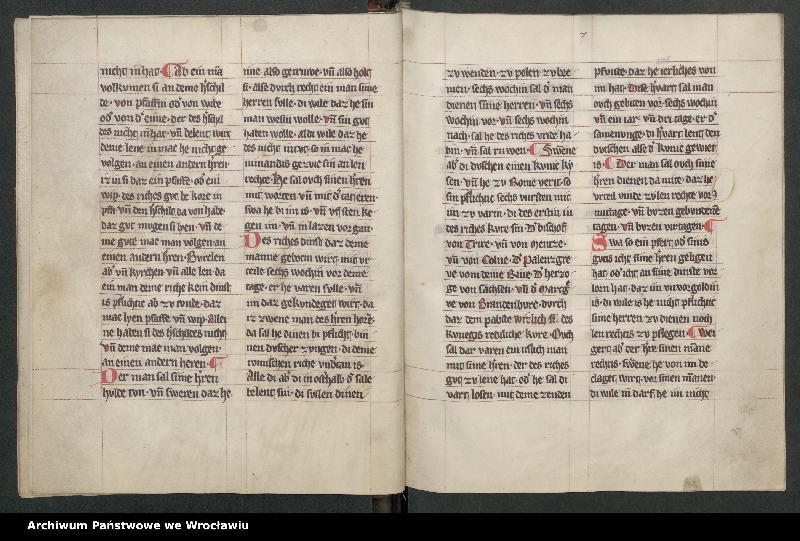 nicht in hat. Ab ein mā
volkumen si an deme hˢschil
de. von pfaffin odˢ von wibe
odˢ von dˢ eime. der des hˢschil
des nicht in hat. vn̄ belent wirt
deme lene in mac he nicht ge
volgen. an einen andern hˢren.
iz in si daz ein pfaffe. odˢ ein
wip. des riches gut be kore in
pfa. vn̄ den hˢschilt da von habe.
daz gut mugen si lien. vn̄ de
me gute mac man volgen. an
einen andern hˢren.
abˢ vn̄ kyrchen. vn̄ alle len. da
ein man deme riche kein dinst
is pflichtic ab zv tvnde. daz
mac lyen pfaffe. vn̄ wip. Allei
ne haben si des hˢschildes nicht.
vn̄ deme mac man volgen.
an einen andern heren.
Der man sal sime hˢren
hulde ton. vn̄ sweren daz he
ime also getruwe. vn̄ also holt
si. alse durch recht ein man sime
herren solle. di wile daz he sin
man wesin wolle. vn̄ sin gut
haben wolle. aldi wile daz he
des nicht in tut. so in mac he
nimandis gezuc sin an len
rechte. He sal ouch sinen hˢren
mit worten. vn̄ mit dˢ tat eren.
swa he bi im is. vn̄ vf sten ke
gen im. vn̄ in lazen vor gan.
Des riches dinst daz deme
manne geboten wirt mit vr
teile sechs wochin vor deme
tage. er he varen solle. vn̄
im daz gekundeget wirt. da
iz zwene man des hˢren horē.
da sal he dinen bi pflicht. bin
nen dvscher zvngen. di deme
romischen riche vndˢtan is.
Alle di abˢ di in osthalb dˢ sale
belent sin. di sullen dinen
zv wenden. zv polen. zv bee
men. sechs wochin sal dˢ man
dienen sime herren. vn̄ sechs
wochin vor. vn̄ sechs wochin
nach. sal he des riches vrde ha
bin. vn̄ sal ruwen. Swene
abˢ di dvschen einen kunic ky
sen. vn̄ he zv Rome verit. so
sin pflichtic sechs vursten mit
im zv varin. di des ersten in
des riches kyre sin. Dˢ bischof
von Trire. vn̄ von mentze.
vn̄ von Colne. Dˢ palenz gre
ve vom deme Rine. Dˢ herzo
ge von sachsen. vn̄ dˢ marcg
ve von Brandenburc. durch
daz dem pabste wizlich si. des
kuniges redliche kore. Ouch
sal dar varen ein islich man
mit sime hˢren. der des riches
gut zv lene hat. odˢ he sal di
vart losen. mit deme zenden
pfunde. daz he ierliches von
im hat. Dise hˢvart sal man
ouch gebiten vor. sechs wochin
vn̄ ein iar. vn̄ dri tage. er dˢ
samenunge. di hˢvart lent den
dvschen alse dˢ kunic gewiet
is. Der man sal ouch sime
hˢren dienen da mite. daz he
vrteil vinde zv len rechte vor
mittage. vn̄ bvzen gebundene
tagen. vn̄ bvzen virtagen.
Swa so ein pfert. odˢ sines
gutis icht sime hˢren geligen
hat. odˢ icht an sime dinste vor
lorn hat. daz im vnvorgoldin
is. di wile is he nicht pflichtic
sime herren zv dienen noch
len rechtis zv pflegen. Wei
gert abˢ der hˢre sinen māne
rechtis. swene he von im be
claget wirt. vor sinen mānen.
di wile in darf he im nicht
Archiwum Państwowe we Wrocławiu